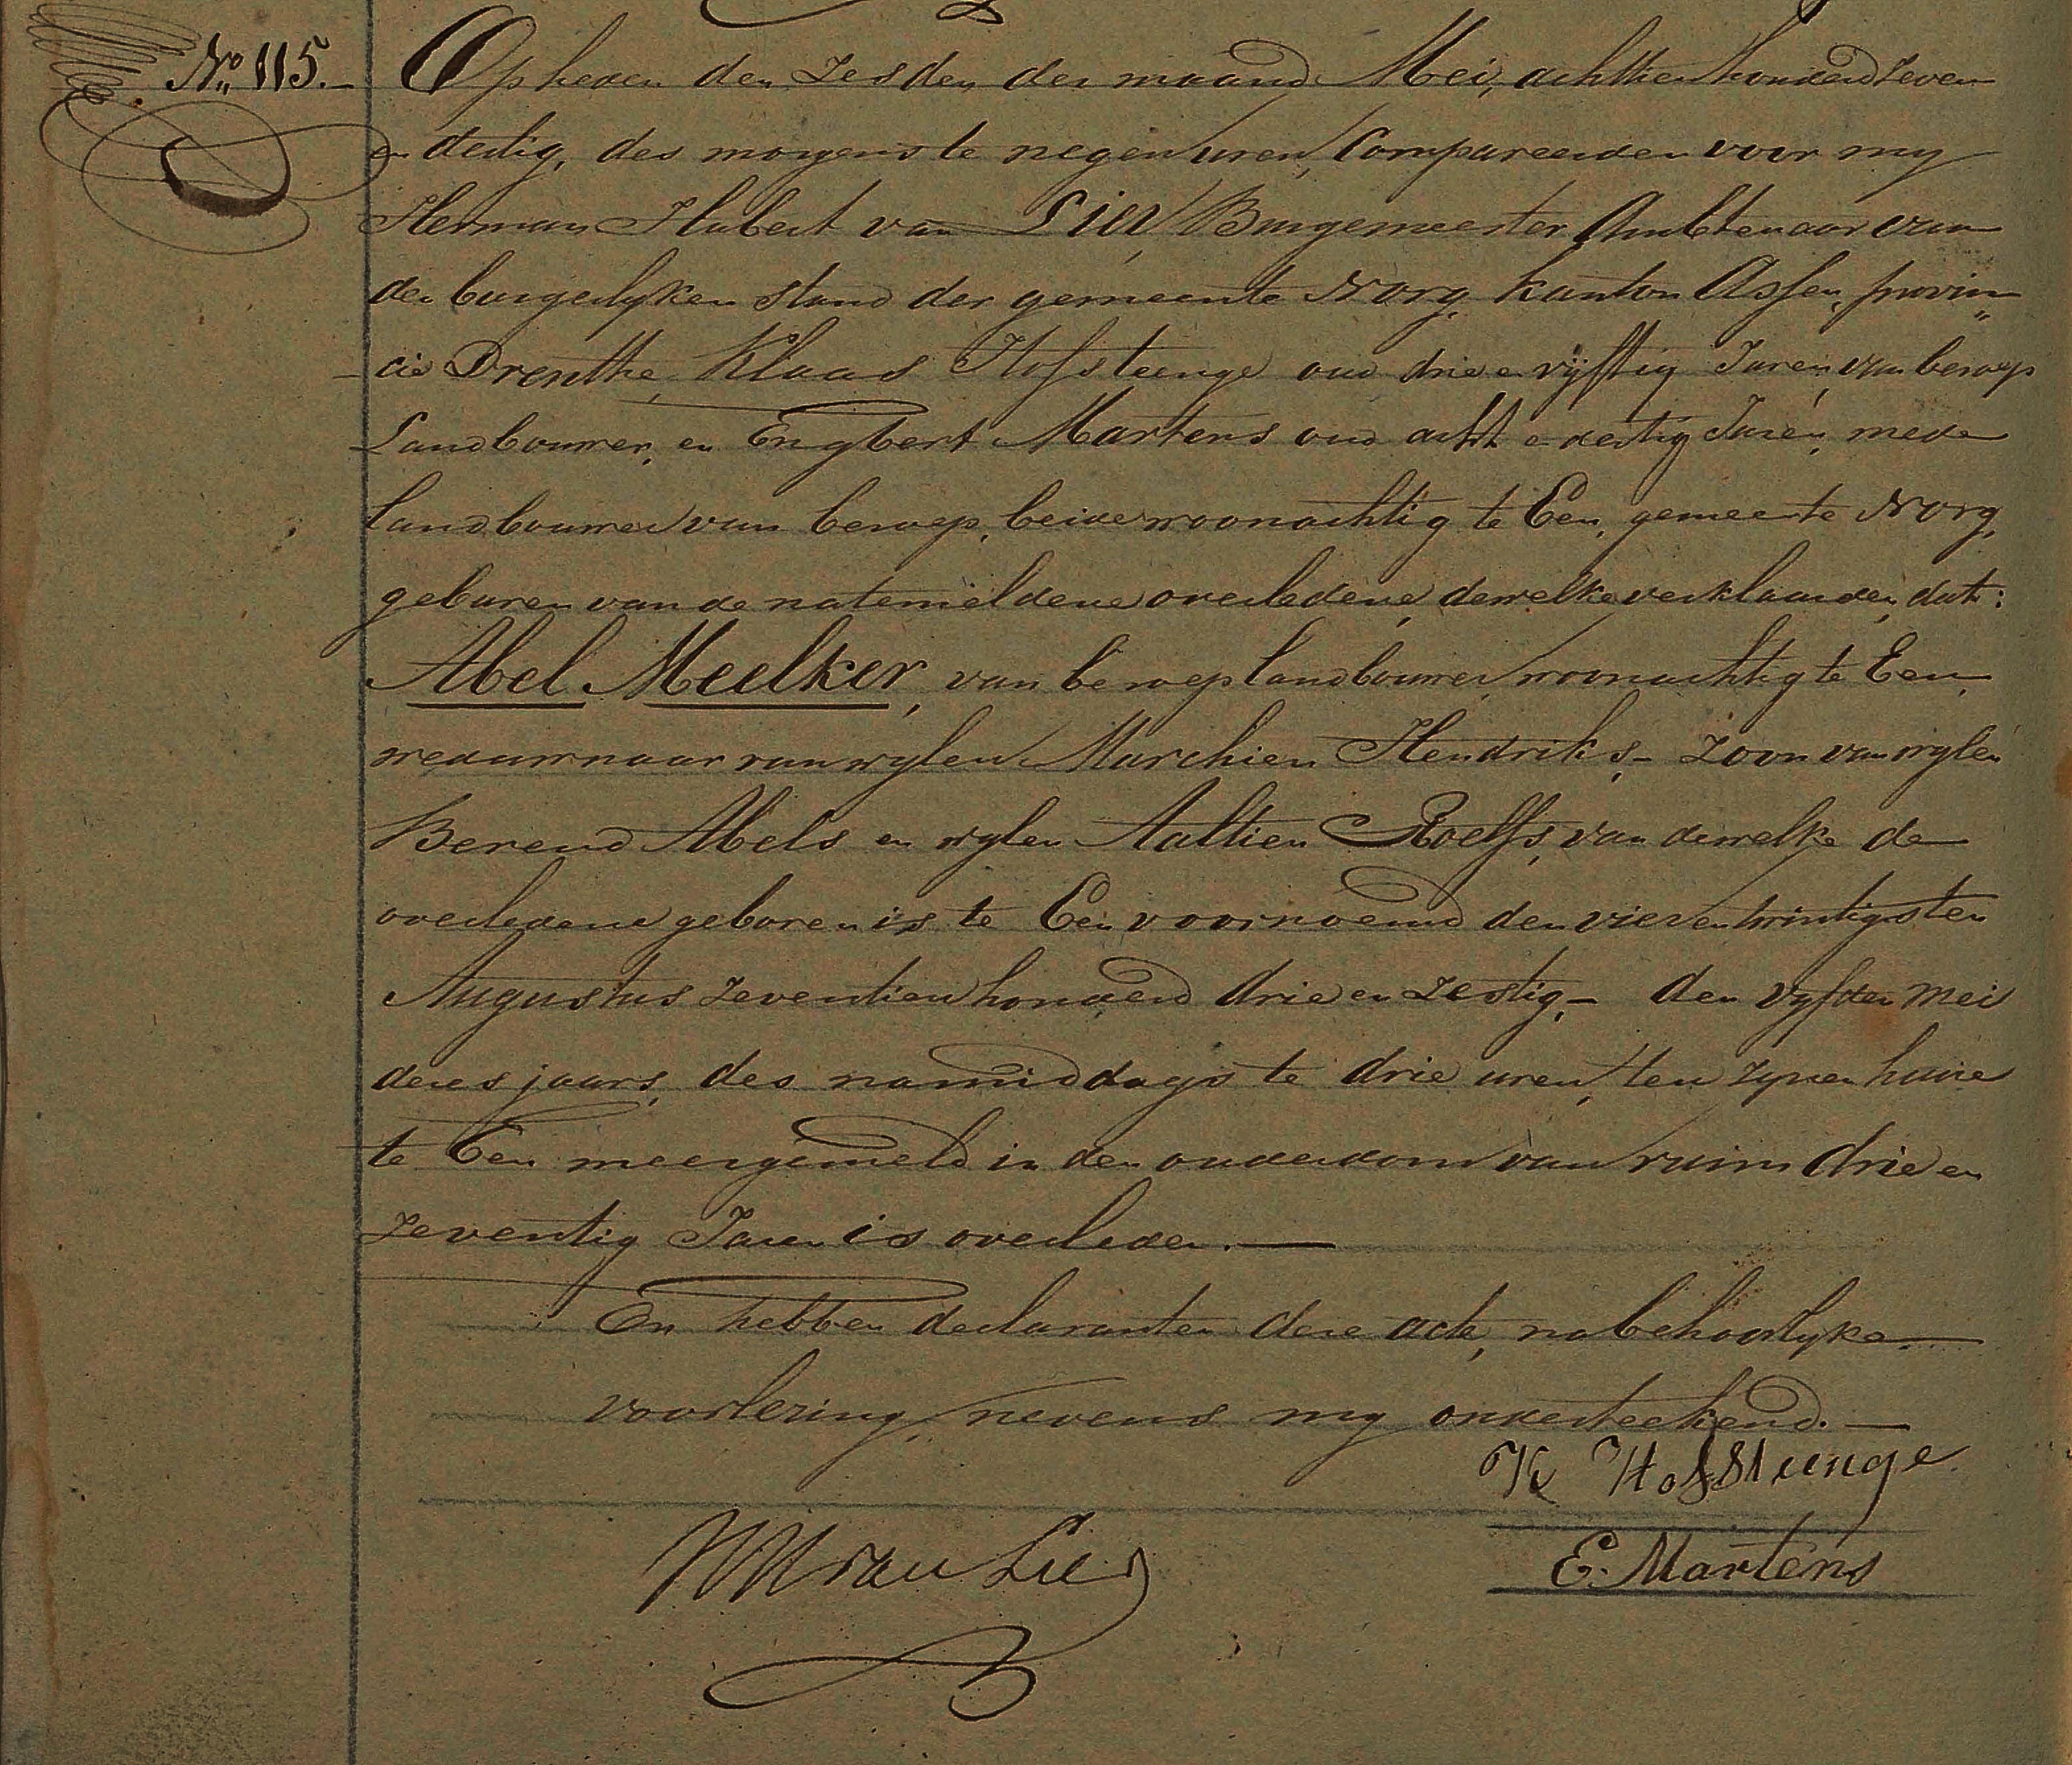 No. 115.- Op heden den zesden der maand Mei, achttienhonderd zeven
en dertig, des morgens te negen uren, Compareerden voor my
Herman Hubert van Lier, Burgemeester, Ambtenaar van
den burgerlyken stand der gemeente Norg, kanton Assen, provin„
-cie Drenthe, Klaas Hofsteenge oud drie en vyftig Jaren, van beroep
Landbouwer, en Engbert Martens oud acht en dertig Jaren, mede
landbouwer van beroep, beide woonachtig te Een, gemeente Norg,
geburen van de natemeldene overledene, dewelke verklaarden, dat:
Abel Meelker, van beroep landbouwer, woonachtig te Een,
weduwnaar van wylen Marchien Hendriks,- zoon van wylen
Berend Abels en wylen Aaltien Roelfs, van dewelke de
overledene geboren is te Een voornoemd den vier en twintigsten
Augustus zeventienhonderd drie en zestig,- den vyfden Mei
dezes jaars, des namiddags te drie uren, ten zynen huize
te Een meergemeld in den ouderdom van ruim drie en
zeventig Jaren is overleden.-
En hebben declaranten deze acte, na behoorlyke
voorlezing, nevens my onderteekend.-
K Hofsteenge
HH van Lier
E. Martens